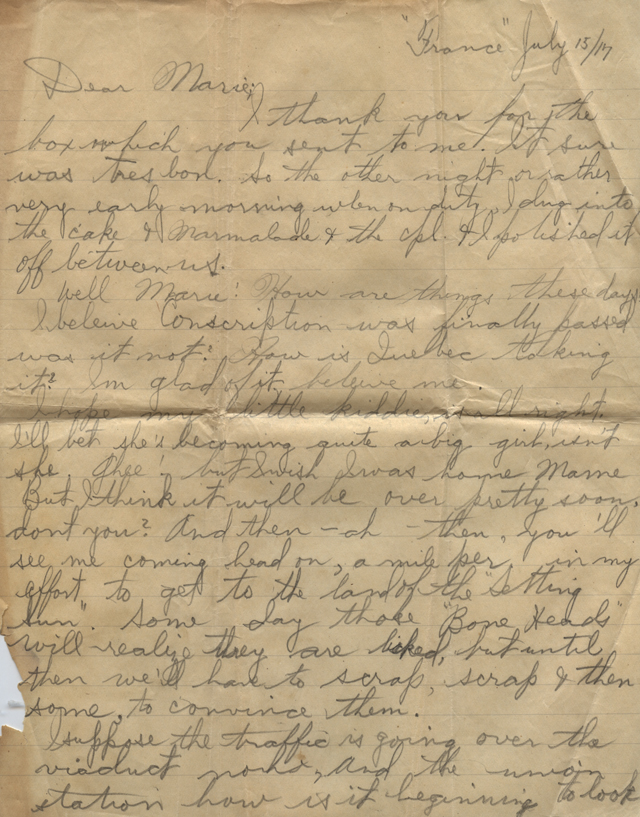 "France" July 15/17
Dear Marie;
I thank you for the
box which you sent to me. It sure
was tres bon. So the other night or rather
very early morning when on duty, I dug into
the cake & Marmalade & the cpl. & I polished it
off between us.
Well Marie! How are things these days
I beleive Conscription was finally passed
was it not? How is Quebec taking
it? Im glad of it beleive me.
I hope my little kiddie is all right.
I'll bet she's becoming quite a big girl, isn't
she. Ghee - but I wish I was home Mame
But I think it will be over pretty soon,
dont you? And then - ah - then, you'll
see me coming head on, a mile per, in my
effort to get to the land of the "Setting
Sun". Some day those "Bone Heads"
will realize they are licked, but until
then we'll have to scrap, scrap & then
some, to convince them.
I suppose the traffic is going over the
viaduct now, And the union
station how is it beginning to look